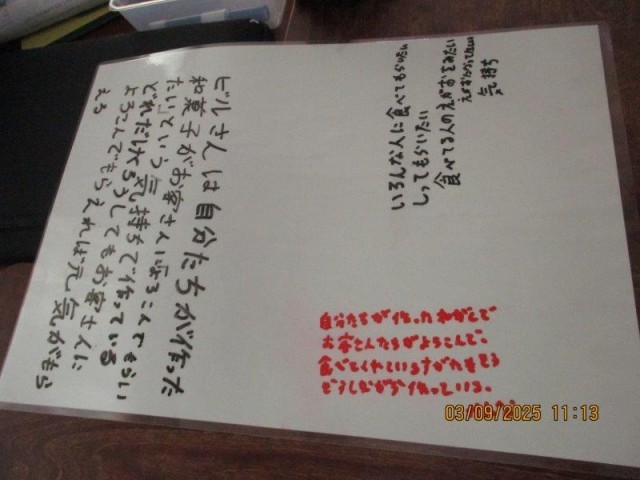 気持ち
食べてる人のえがおをみたい
しってもらいたい
いろんな人に食べてもらいたい
ビルさんは自分たちが作った
和菓子がお客さんに「よろこんでもらい
たい」という気持ちで作っている
どれだけくろうしてもお客さんに
よろこんでもらえれば元気がもら
える
自分たちが作ったわがしで
お客さんたちがよろこんで、
食べてくれているすがたをそう
ぞうしながら作っている。
03/09/2025 11:13